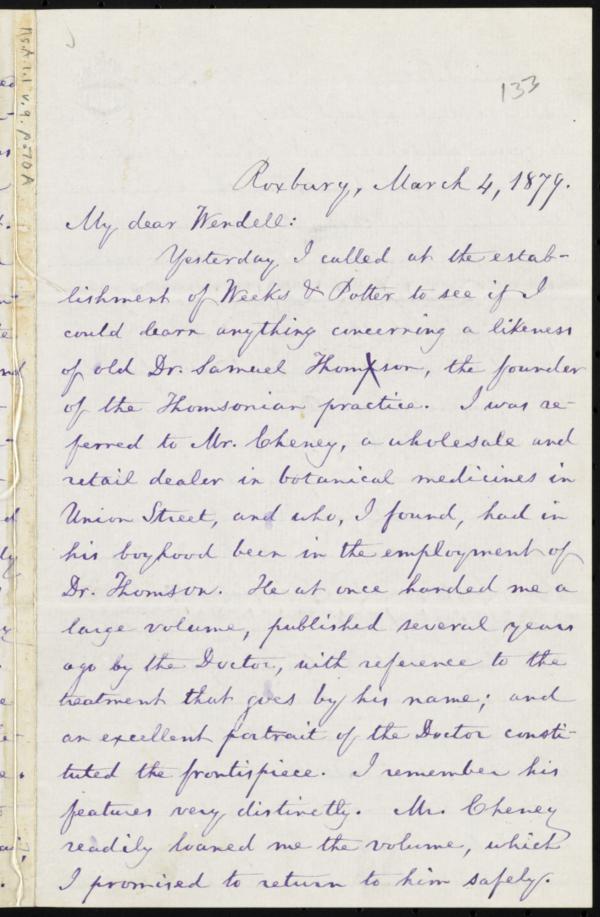 133
Ms.A.1.1 v.9, p.70A
Roxbury, March 4, 1879.
My dear Wendell:
Yesterday I called at the estab-
lishment of Weeks & Potter to see if I
could learn anything concerning a likeness
of old Dr. Samuel Thomson, the founder
of the Thomsonian practice. I was re-
ferred to Mr. Cheney, a wholesale and
retail dealer in botanical medicines in
Union Street, and who, I found, had in
his boyhood been in the employment of
Dr. Thomson. He at once handed me a
large volume, published several years
ago by the Doctor, with reference to the
treatment that goes by his name; and
an excellent portrait of the Doctor consti-
tuted the frontispiece. I remember his
features very distinctly. Mr. Cheney
readily loaned me the volume, which
I promised to return to him safely.